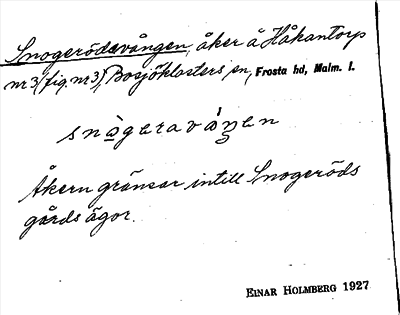 Snogerödsvången, åker å Håkantorp
nr 3 (fig. nr 3), Bosjöklosters sn, Frosta hd, Malm. l.
snògeraváŋen
Åkern gränsar intill Snogeröds
gårds ägor.
EINAR HOLMBERG 1927